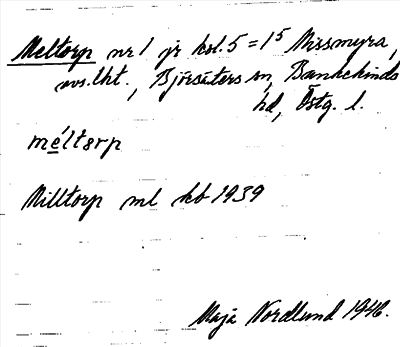 Meltorp nr 1 jr kol. 5 = 1⁵ Missmyra,
avs. lht., Björsäters sn, Bankekinds
hd, Östg. l.
méltɘrp
Milltorp ml kb 1939
Maja Nordlund 1946.